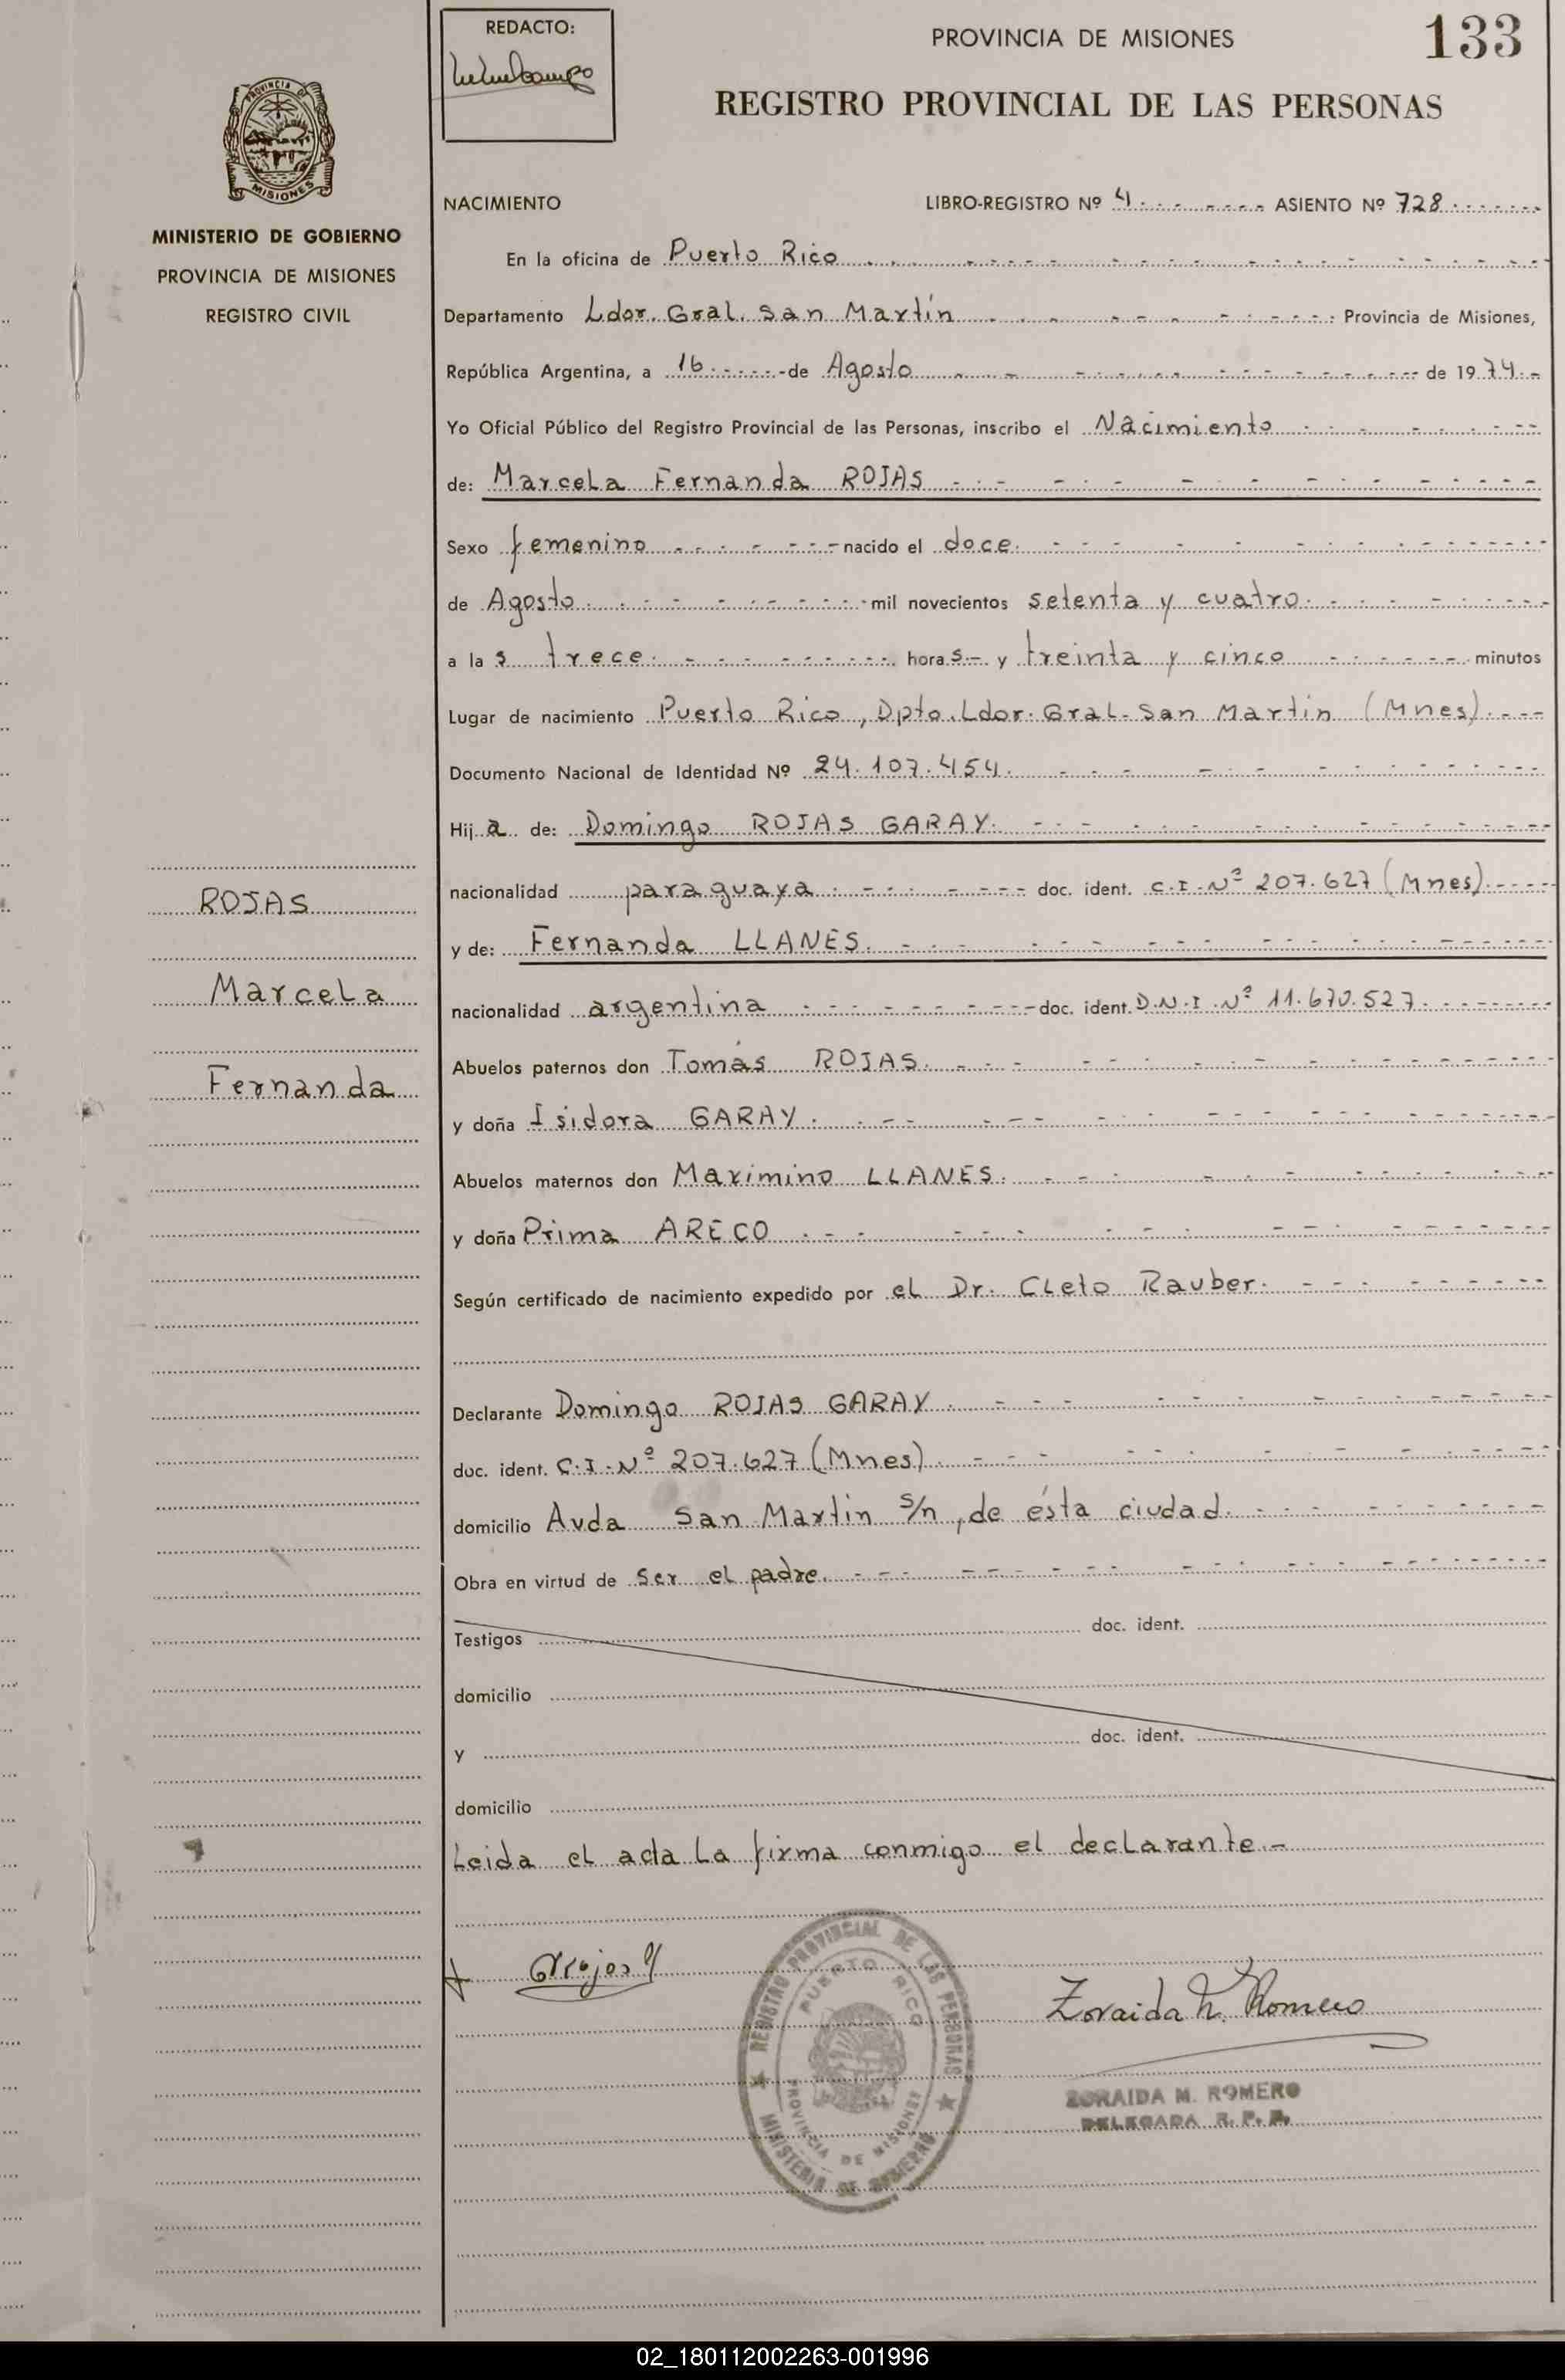 REDACTO:
PROVINCIA DE MISIONES
133
REGISTRO PROVINCIAL DE LAS PERSONAS
PROVINCIA DE
MISIONES
MINISTERIO DE GOBIERNO
PROVINCIA DE MISIONES
REGISTRO CIVIL
NACIMIENTO LIBRO-REGISTRO Nº 4 ASIENTO Nº 728
En la oficina de Puerto Rico
Departamento Ldor. Gral. San Martín Provincia de Misiones,
República Argentina, a 16 de Agosto de 1974
Yo Oficial Público del Registro Provincial de las Personas, inscribo el Nacimiento
de: Marcela Fernanda ROJAS
Sexo femenino nacido el doce
de Agosto mil novecientos setenta y cuatro
a la s trece hora s y treinta y cinco minutos
Lugar de nacimiento Puerto Rico, Dpto. Ldor. Gral. San Martin (Mnes)
Documento Nacional de Identidad Nº 24.107.454.
Hij a de: Domingo ROJAS GARAY
nacionalidad paraguaya doc. ident. C.I. Nº 207.627 (Mnes)
y de: Fernanda LLANES.
nacionalidad argentina doc. ident. D.N.I. Nº 11.670.527.
Abuelos paternos don Tomás ROJAS.
y doña Isidora GARAY.
Abuelos maternos don Maximino LLANES.
y doña Prima ARECO
Según certificado de nacimiento expedido por el Dr. Cleto Rauber.
Declarante Domingo ROJAS GARAY
doc. ident. C.I. Nº 207.627 (Mnes)
domicilio Avda San Martin s/n, de ésta ciudad.
Obra en virtud de ser el padre.
Testigos doc. ident.
domicilio
y doc. ident.
domicilio
Leida el acta la firma conmigo el declarante.-
ROJAS
Marcela
Fernanda
REGISTRO PROVINCIAL DE LAS PERSONAS
PUERTO RICO
PROVINCIA DE MISIONES
MINISTERIO DE GOBIERNO
Zoraida M. Romero
ZORAIDA M. ROMERO
DELEGADA R. P. P.
02_180112002263-001996